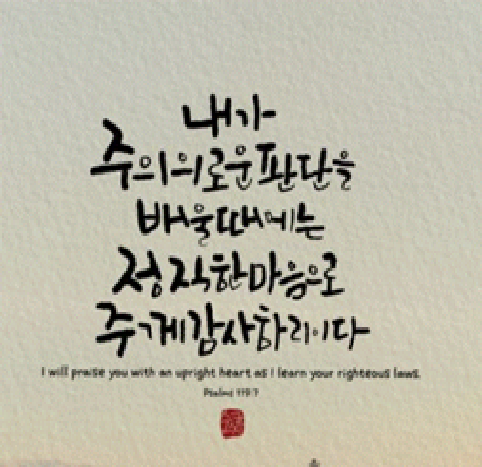 내가
주의 의로운 판단을
배울때에는
정직한 마음으로
주께 감사하리이다
I will praise you with an upright heart as I learn your righteous laws.
Psalms 119:7